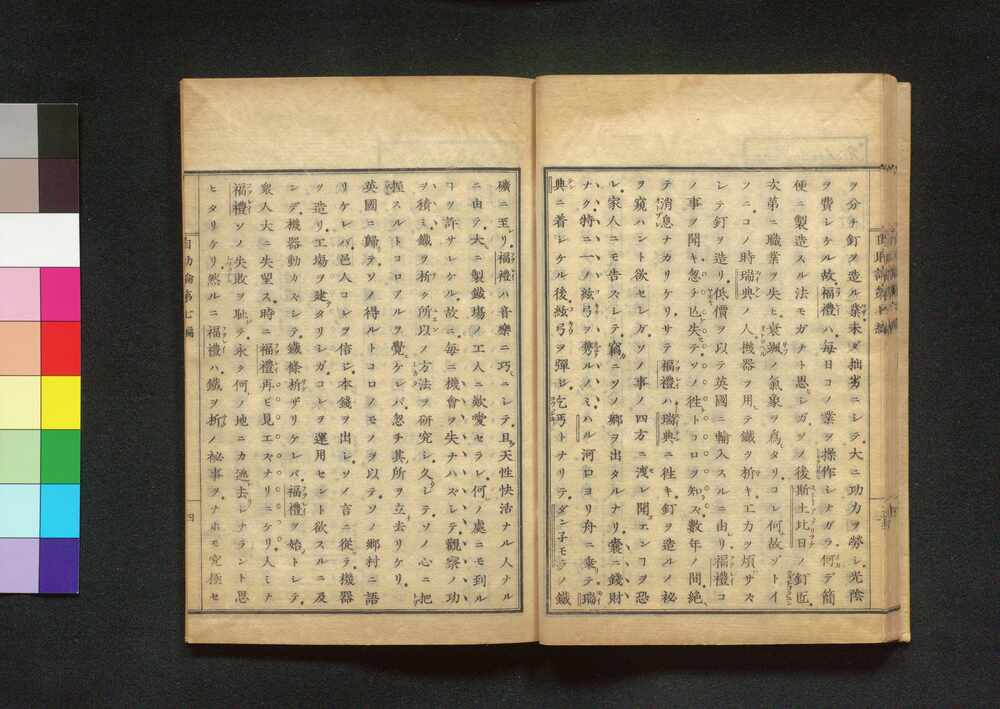 ヲ分チ釘ヲ造ル業未ダ拙劣ニシテ大ニ功力ヲ勞シ光陰
ヲ費シケル故福禮ハ毎日コノ業ヲ操作シナガラ何デ簡
便ニ製造スル法モガナト思シガソノ後斯土比日ノ釘匠
次第ニ職業ヲ失ヒ衰颯ノ氣象ヲ爲タリコレ何故ゾトイ
フニコノ時瑞典ノ人機器ヲ用テ鐵ヲ析キエカヲ煩サズ
シテ釘ヲ造リ低價ヲ以テ英國ニ輸入スルニ由リ福禮コ
ノ事ヲ聞キ忽チ亾失テソノ徃トコロヲ知ズ數年ノ間絶
テ消息ナカリケリサテ福禮ハ瑞典ニ徃キ釘ヲ造ルノ秘
ヲ窺ハント欲セシガソノ事ノ四方ニ洩レ聞エンコヲ恐
レ家人ニモ告ズシテ竊ニソノ郷ヲ出タルナリ嚢ニ錢財
ナク特ニ一ノ絃弓ヲ携ルノミハル河口ヨリ舟ニ乗テ瑞
典ニ着シケル後絃弓ヲ彈シ乞丐トナリテダン子モラノ鐵
礦ニ至リ福禮ハ音樂ニ巧ニシテ且天性快活ナル人ナル
ニ由テ大ニ製鐵塲ノ工人ニ欵愛セラレ何ノ處ニモ到ル
コヲ許サレケル故ニ毎ニ機會ヲ失ナハズシテ觀察ノ功
ヲ積ミ鐵ヲ析ク所以ノ方法ヲ研究シ久シテソノ心ニ把
握スルトコロアルヲ覺ケレバ忽チ其所ヲ立去リケリ
英國ニ歸テソノ得ルトコロノモノヲ以テソノ鄉村ニ語
リケレバ邑人コレヲ信ジ本錢ヲ出シソノ言ニ從テ機器
ヲ造リ工塲ヲ建タリシガコレヲ運用セント欲スルニ及
ンデ機器動カズシテ鐵條析ザリケレバ福禮ヲ始トシテ
衆人大ニ失望ス時ニ福禮再ビ見エズナリニケリ人ミナ
福禮ソノ失敗ヲ恥テ永ク何ノ地ニカ逃去シナラント思
ヒタリケリ然ルニ福禮ハ鐵ヲ析ノ祕事ヲナホモ究極セ
自助論第七編
四